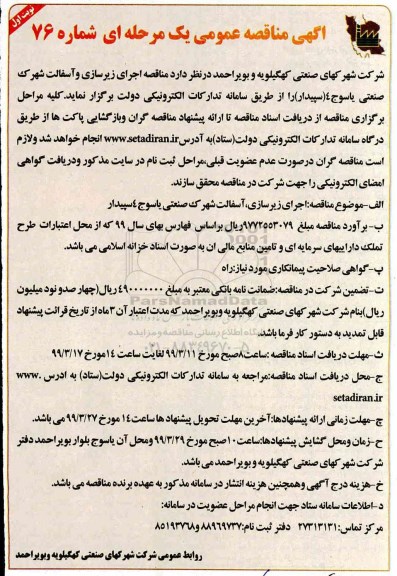 نوبت اول
آگهی مناقصه عمومی یک مرحله ای شماره ۷۶
شرکت شهرکهای صنعتی کهگیلویه و بویراحمد درنظر دارد مناقصه اجرای زیرسازی و آسفالت شهرک
صنعتی یاسوج۴(سپیدار)را از طریق سامانه تدارکات الکترونیکی دولت برگزار نماید.کلیه مراحل
برگزاری مناقصه از دریافت اسناد مناقصه تا ارائه پیشنهاد مناقصه گران وبازگشایی پاکت ها از طریق
درگاه سامانه تدارکات الکترونیکی دولت(ستاد)به آدرسwww.setadiran.ir انجام خواهد شد ولازم
است مناقصه گران درصورت عدم عضویت قبلی،مراحل ثبت نام در سایت مذکور ودریافت گواهی
امضای الکترونیکی را جهت شرکت در مناقصه محقق سازند.
الف-موضوع مناقصه:اجرای زیرسازی،آسفالت شهرک صنعتی یاسوج۴سپیدار
ب-برآورد مناقصه مبلغ ۹۷۷۲۵۵۳۰۷۹ریال براساس فهارس بهای سال ۹۹ که از محل اعتبارات طرح
تملک دارایيهای سرمایه ای و تامین منابع مالی ان به صورت اسناد خزانه اسلامی می باشد.
پ-گواهی صلاحیت پیمانکاری مورد نیاز:راه
ت-تضمین شرکت در مناقصه:ضمانت نامه بانکی معتبر به مبلغ ۴۹۰۰۰۰۰۰۰ ریال(چهارصدو نود میلیون
ریال)بنام شرکت شهرکهای صنعتی کهگیلویه وبویراحمد که مدت اعتبار آن ۳ماه از تاریخ قرائت پیشنهاد
قابل تمدید به دستور کار فرما باشد.
ث-مهلت دریافت اسناد مناقصه :ساعت۸صبح مورخ ۹۹/۳/۱۱ لغایت ساعت ۱۴مورخ ۹۹/۳/۱۷
ج-محل دریافت اسناد مناقصه:مراجعه به سامانه تدارکات الکترونیکی دولت(ستاد) به ادرس www.
setadiran.ir
چ-مهلت زمانی ارائه پیشنهادها:آخرین مهلت تحویل پیشنهاد ها ساعت۱۴ مورخ ۹۹/۳/۲۷ می باشد.
ح-زمان ومحل گشایش پیشنهادها:ساعت۱۰صبح مورخ ۹۹/۳/۲۹ ومحل آن یاسوج بلوار بویراحمد دفتر
شرکت شهرکهای صنعتی کهگیلویه و بویراحمد می باشد.
خ-هزینه درج آگهی وهمچنین هزینه انتشار در سامانه مذکور به عهده برنده مناقصه می باشد.
د-اطلاعات سامانه ستاد جهت انجام مراحل عضویت در سامانه:
مرکز تماس:۲۷۳۱۳۱۳۱ دفتر ثبت نام:۸۸۹۶۹۷۳۷و۸۵۱۹۳۷۶۸
روابط عمومی شرکت شهرکهای صنعتی کهگیلویه وبویراحمد